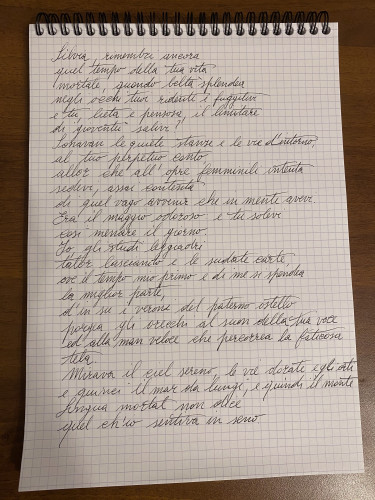 Silvia, rimembri ancora
quel tempo della tua vita
mortale, quando beltà splendea
negli occhi tuoi ridenti e fuggitivi
e tu, lieta e pensosa, il limitare
di gioventù salivi?
Sonavan le quiete stanze e le vie d'intorno,
al tuo perpetuo canto,
allor che all'opre femminili intenta
sedevi, assai contenta
di quel vago avvenir che in mente avevi.
Era il maggio odoroso e tu solevi
così menare il giorno.
Io, gli studi leggiadri
talor lasciando e le sudate carte,
ove il tempo mio primo e di me si spendea
la miglior parte,
d'in su i veroni del paterno ostello
porgea gli orecchi al suon della tua voce
ed alla man veloce che percorrea la faticosa
tela.
Mirava il ciel sereno, le vie dorate e gli orti
e quinci il mar da lungi, e quindi il monte
Lingua mortal non dice
quel ch'io sentiva in seno.